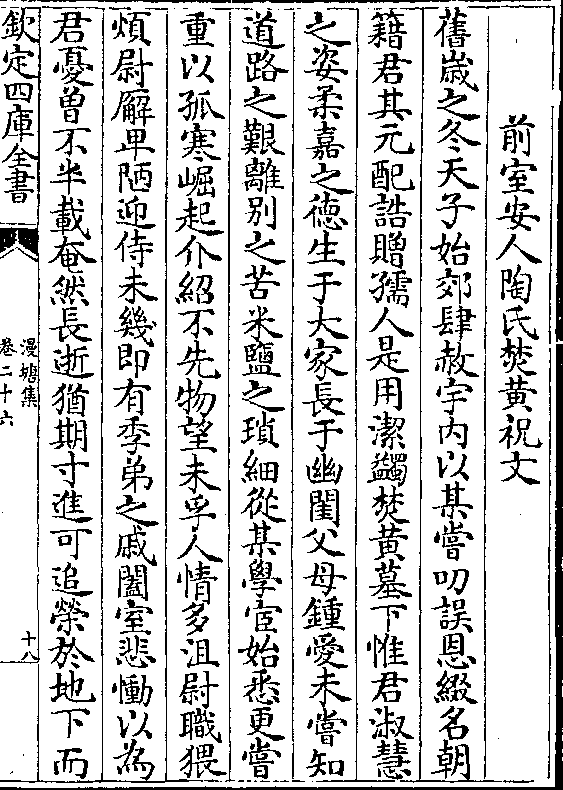 前室安人陶氏焚黄祝文
舊歳之冬天子始郊肆赦宇内以某嘗叨誤恩綴名朝
籍君其元配誥贈孺人是用潔蠲焚黄墓下惟君淑慧
之姿柔嘉之徳生于大家長于幽閨父母鍾愛未嘗知
道路之艱離别之苦米鹽之瑣細從某學宦始悉更嘗
重以孤寒崛起介紹不先物望未孚人情多沮尉職猥
煩尉廨卑陋迎侍未幾即有季弟之戚闔室悲慟以為
君憂曽不半載奄然長逝猶期寸進可追榮於地下而
欽定四庫全書
漫塘集
卷二十六
十八